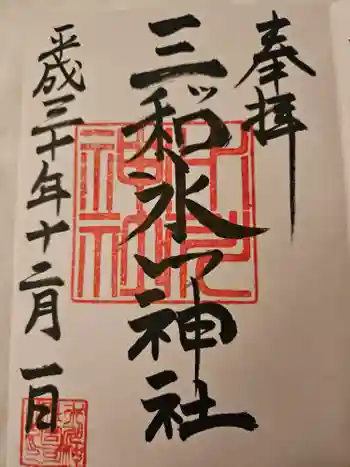 奉拝
三和氷川神社
平成三十年十二月一日
氷川神社